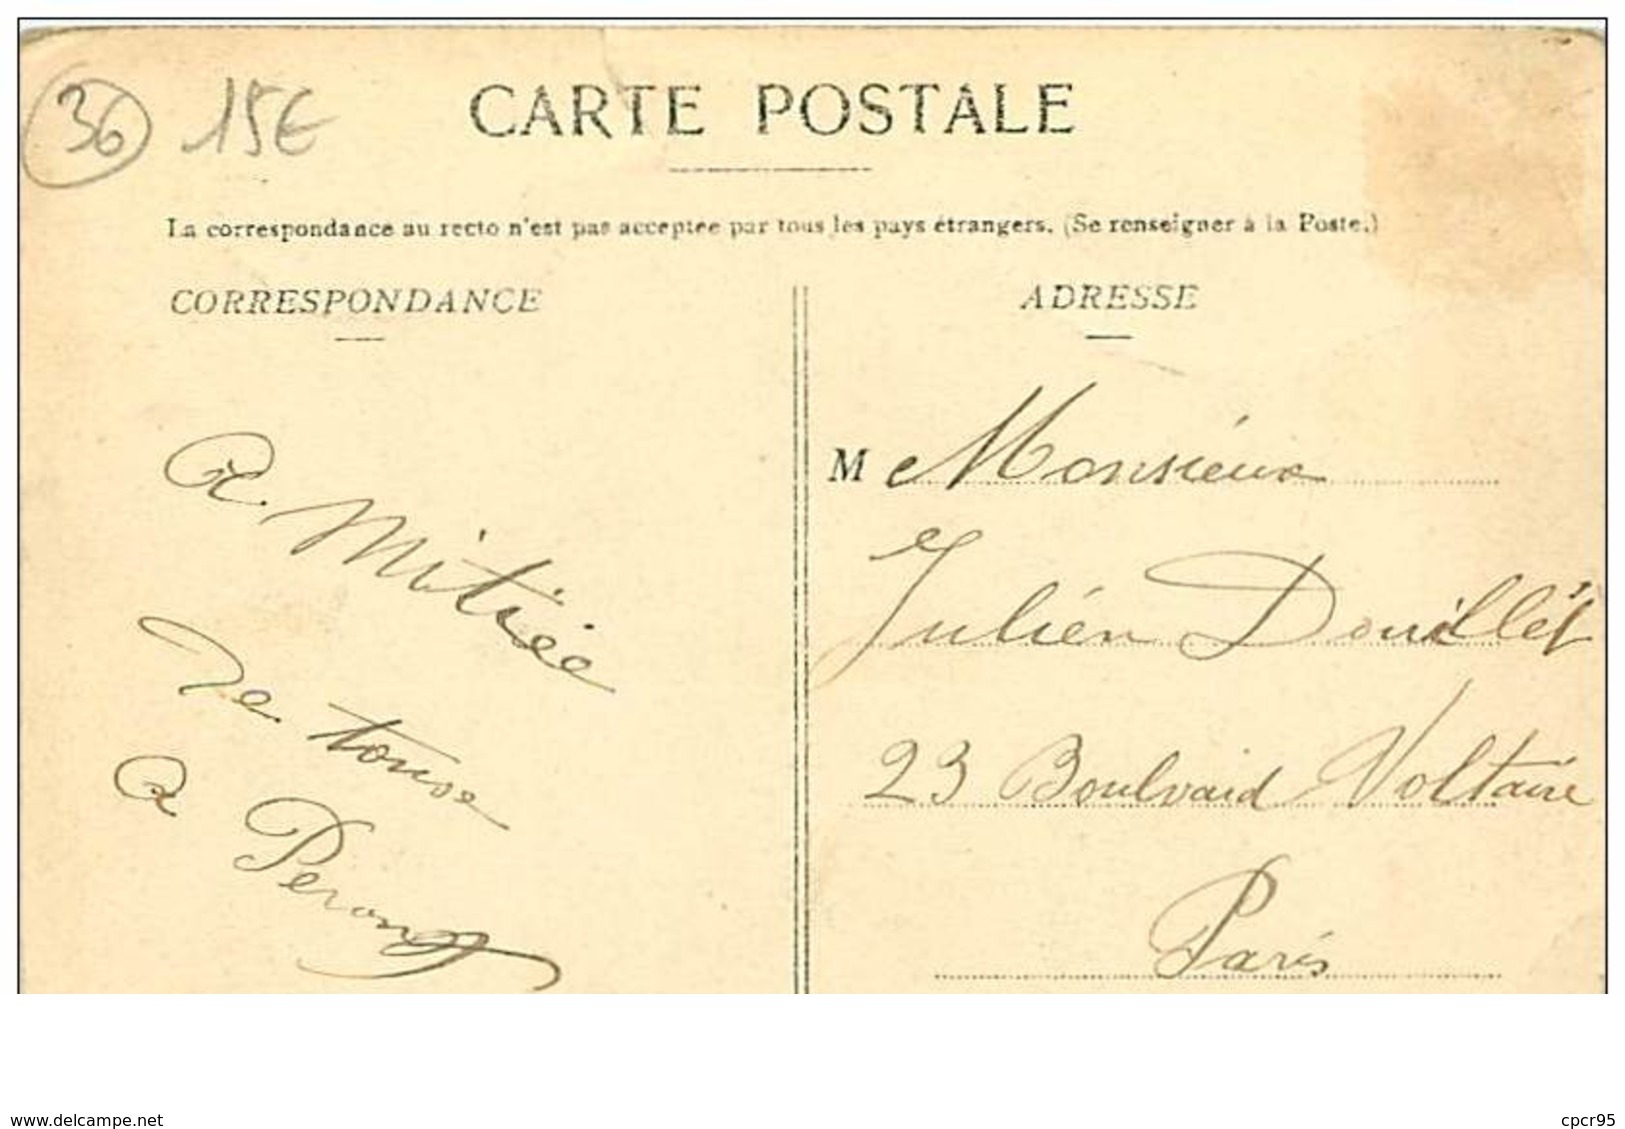 36 15€
CARTE POSTALE
La correspondance au recto n'est pas acceptée par tous les pays étrangers. (Se renseigner à la Poste.)
CORRESPONDANCE
ADRESSE
Amitiée
de tous
A
M Monsieur
Julien Douillet
23 Boulvard Voltaire
Paris
www.delcampe.net
cpcr95